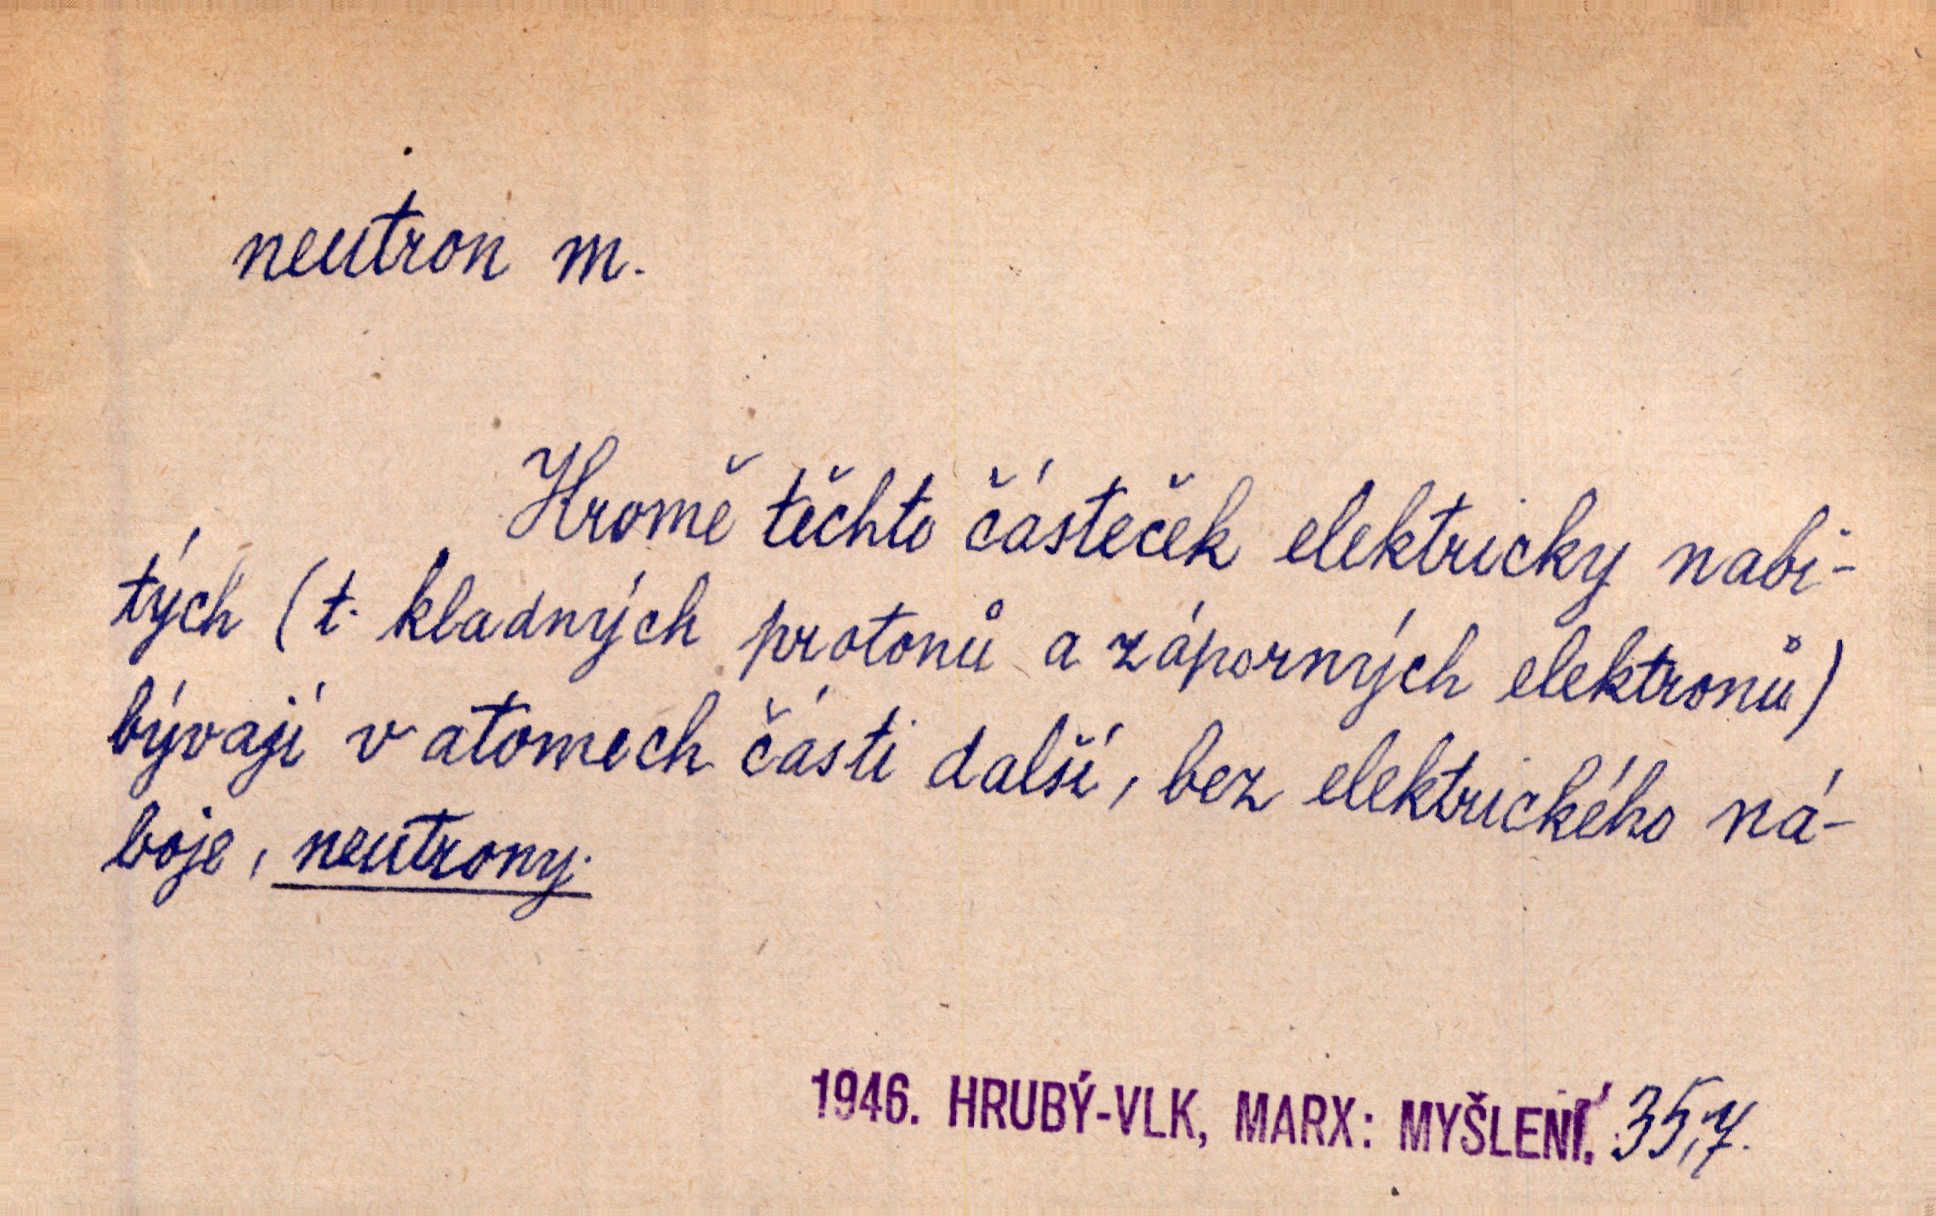 neutron m.
Kromě těchto částeček elektricky nabi-
tých (t. kladných protonů a záporných elektronů)
bývají v atomech části další, bez elektrického ná-
boje, neutrony.
1946. HRUBÝ-VLK, MARX: MYŠLENÍ. 35,7.